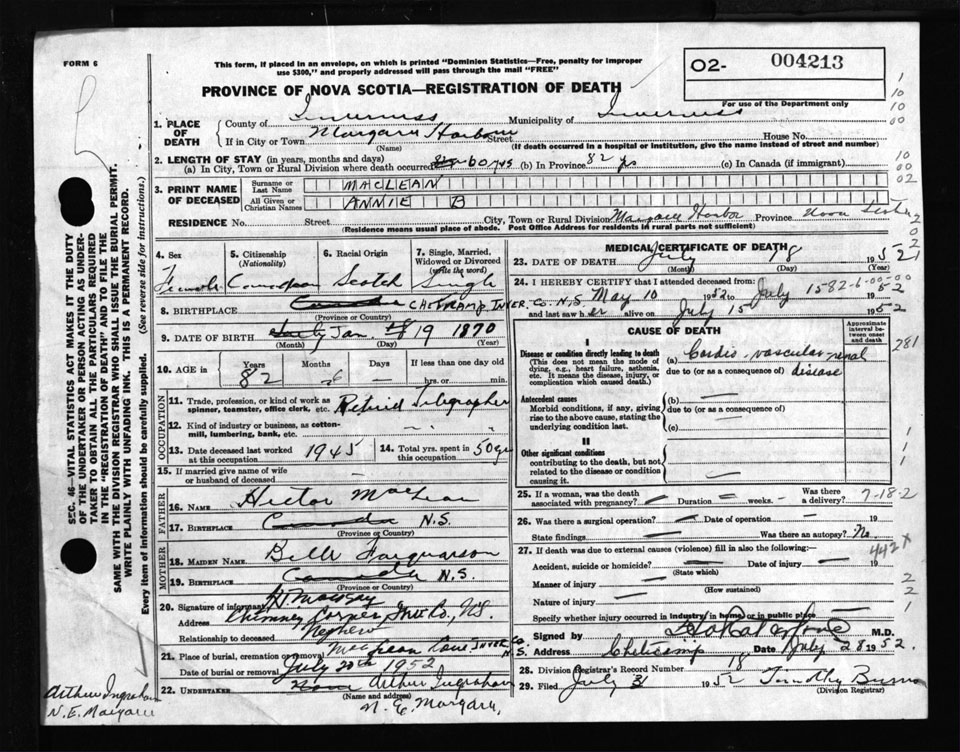 FORM 6
This form, if placed in an envelope, on which is printed "Dominion Statistics—Free, penalty for improper
use $300," and properly addressed will pass through the mail "FREE"
O2- 004213
For use of the Department only
PROVINCE OF NOVA SCOTIA—REGISTRATION OF DEATH
1. PLACE OF DEATH
County of Inverness Municipality of Inverness
If in City or Town Margaree Harbour Street House No.
(Name) (If death occurred in a hospital or institution, give the name instead of street and number)
2. LENGTH OF STAY (in years, months and days)
(a) In City, Town or Rural Division where death occurred 60 yrs (b) In Province 82 yrs (c) In Canada (if immigrant)
3. PRINT NAME OF DECEASED
Surname or Last Name MACLEAN
All Given or Christian Names ANNIE B
RESIDENCE No. Street City, Town or Rural Division Margaree Harbor Province Nova Scotia
(Residence means usual place of abode. Post Office Address for residents in rural parts not sufficient)
4. Sex Female
5. Citizenship (Nationality) Canadian
6. Racial Origin Scotch
7. Single, Married, Widowed or Divorced (write the word) Single
8. BIRTHPLACE Canada CHETICAMP INVER. Co. N.S.
(Province or Country)
9. DATE OF BIRTH July Jan. 19 1870
(Month) (Day) (Year)
10. AGE in Years 82 Months Days If less than one day old hrs. or min.
OCCUPATION
11. Trade, profession, or kind of work as spinner, teamster, office clerk, etc. Retired Telegrapher
12. Kind of industry or business, as cotton-mill, lumbering, bank, etc.
13. Date deceased last worked at this occupation 1945
14. Total yrs. spent in this occupation 50 yrs
15. If married give name of wife or husband of deceased
FATHER
16. NAME Hector MacLean
17. BIRTHPLACE Canada N.S.
(Province or Country)
MOTHER
18. MAIDEN NAME Belle Farquarson
19. BIRTHPLACE Canada N.S.
(Province or Country)
20. Signature of informant
Address Chimney Corner, Inver Co., N.S.
Relationship to deceased Nephew
21. Place of burial, cremation or removal MacLean Cove INVER. Co. N.S.
Date of burial or removal July 20th 1952
22. UNDERTAKER Arthur Ingraham
(Name and address)
N. E. Margaree,
Arthur Ingraham
N.E. Margaree
MEDICAL CERTIFICATE OF DEATH
23. DATE OF DEATH July 18 1952
(Month) (Day) (Year)
24. I HEREBY CERTIFY that I attended deceased from:
May 10 1952 to July 15 1952
and last saw her alive on July 15 1952
CAUSE OF DEATH
Approximate interval between onset and death
I
Disease or condition directly leading to death
(This does not mean the mode of dying, e.g., heart failure, asthenia, etc. It means the disease, injury, or complication which caused death.)
(a) Cardio-vascular renal disease
due to (or as a consequence of)
Antecedent causes
Morbid conditions, if any, giving rise to the above cause, stating the underlying condition last.
(b)
due to (or as a consequence of)
(c)
II
Other significant conditions
contributing to the death, but not related to the disease or condition causing it.
25. If a woman, was the death associated with pregnancy? Duration weeks. Was there a delivery?
7-18-2
26. Was there a surgical operation? Date of operation 19
State findings Was there an autopsy? No.
27. If death was due to external causes (violence) fill in also the following:—
442X
Accident, suicide or homicide? Date of injury 19
(State which)
Manner of injury
(How sustained)
Nature of injury
Specify whether injury occurred in industry / in home / or in public place
Signed by M.D.
Address Cheticamp Date July 28 1952.
28. Division Registrar's Record Number 18
29. Filed July 31 1952 Timothy Burns
(Division Registrar)
SEC. 46—VITAL STATISTICS ACT MAKES IT THE DUTY
OF THE UNDERTAKER OR PERSON ACTING AS UNDER-
TAKER TO OBTAIN ALL THE PARTICULARS REQUIRED
IN THE "REGISTRATION OF DEATH" AND TO FILE THE
SAME WITH THE DIVISION REGISTRAR WHO SHALL ISSUE THE BURIAL PERMIT.
WRITE PLAINLY WITH UNFADING INK. THIS IS A PERMANENT RECORD.
Every item of information should be carefully supplied. (See reverse side for instructions.)